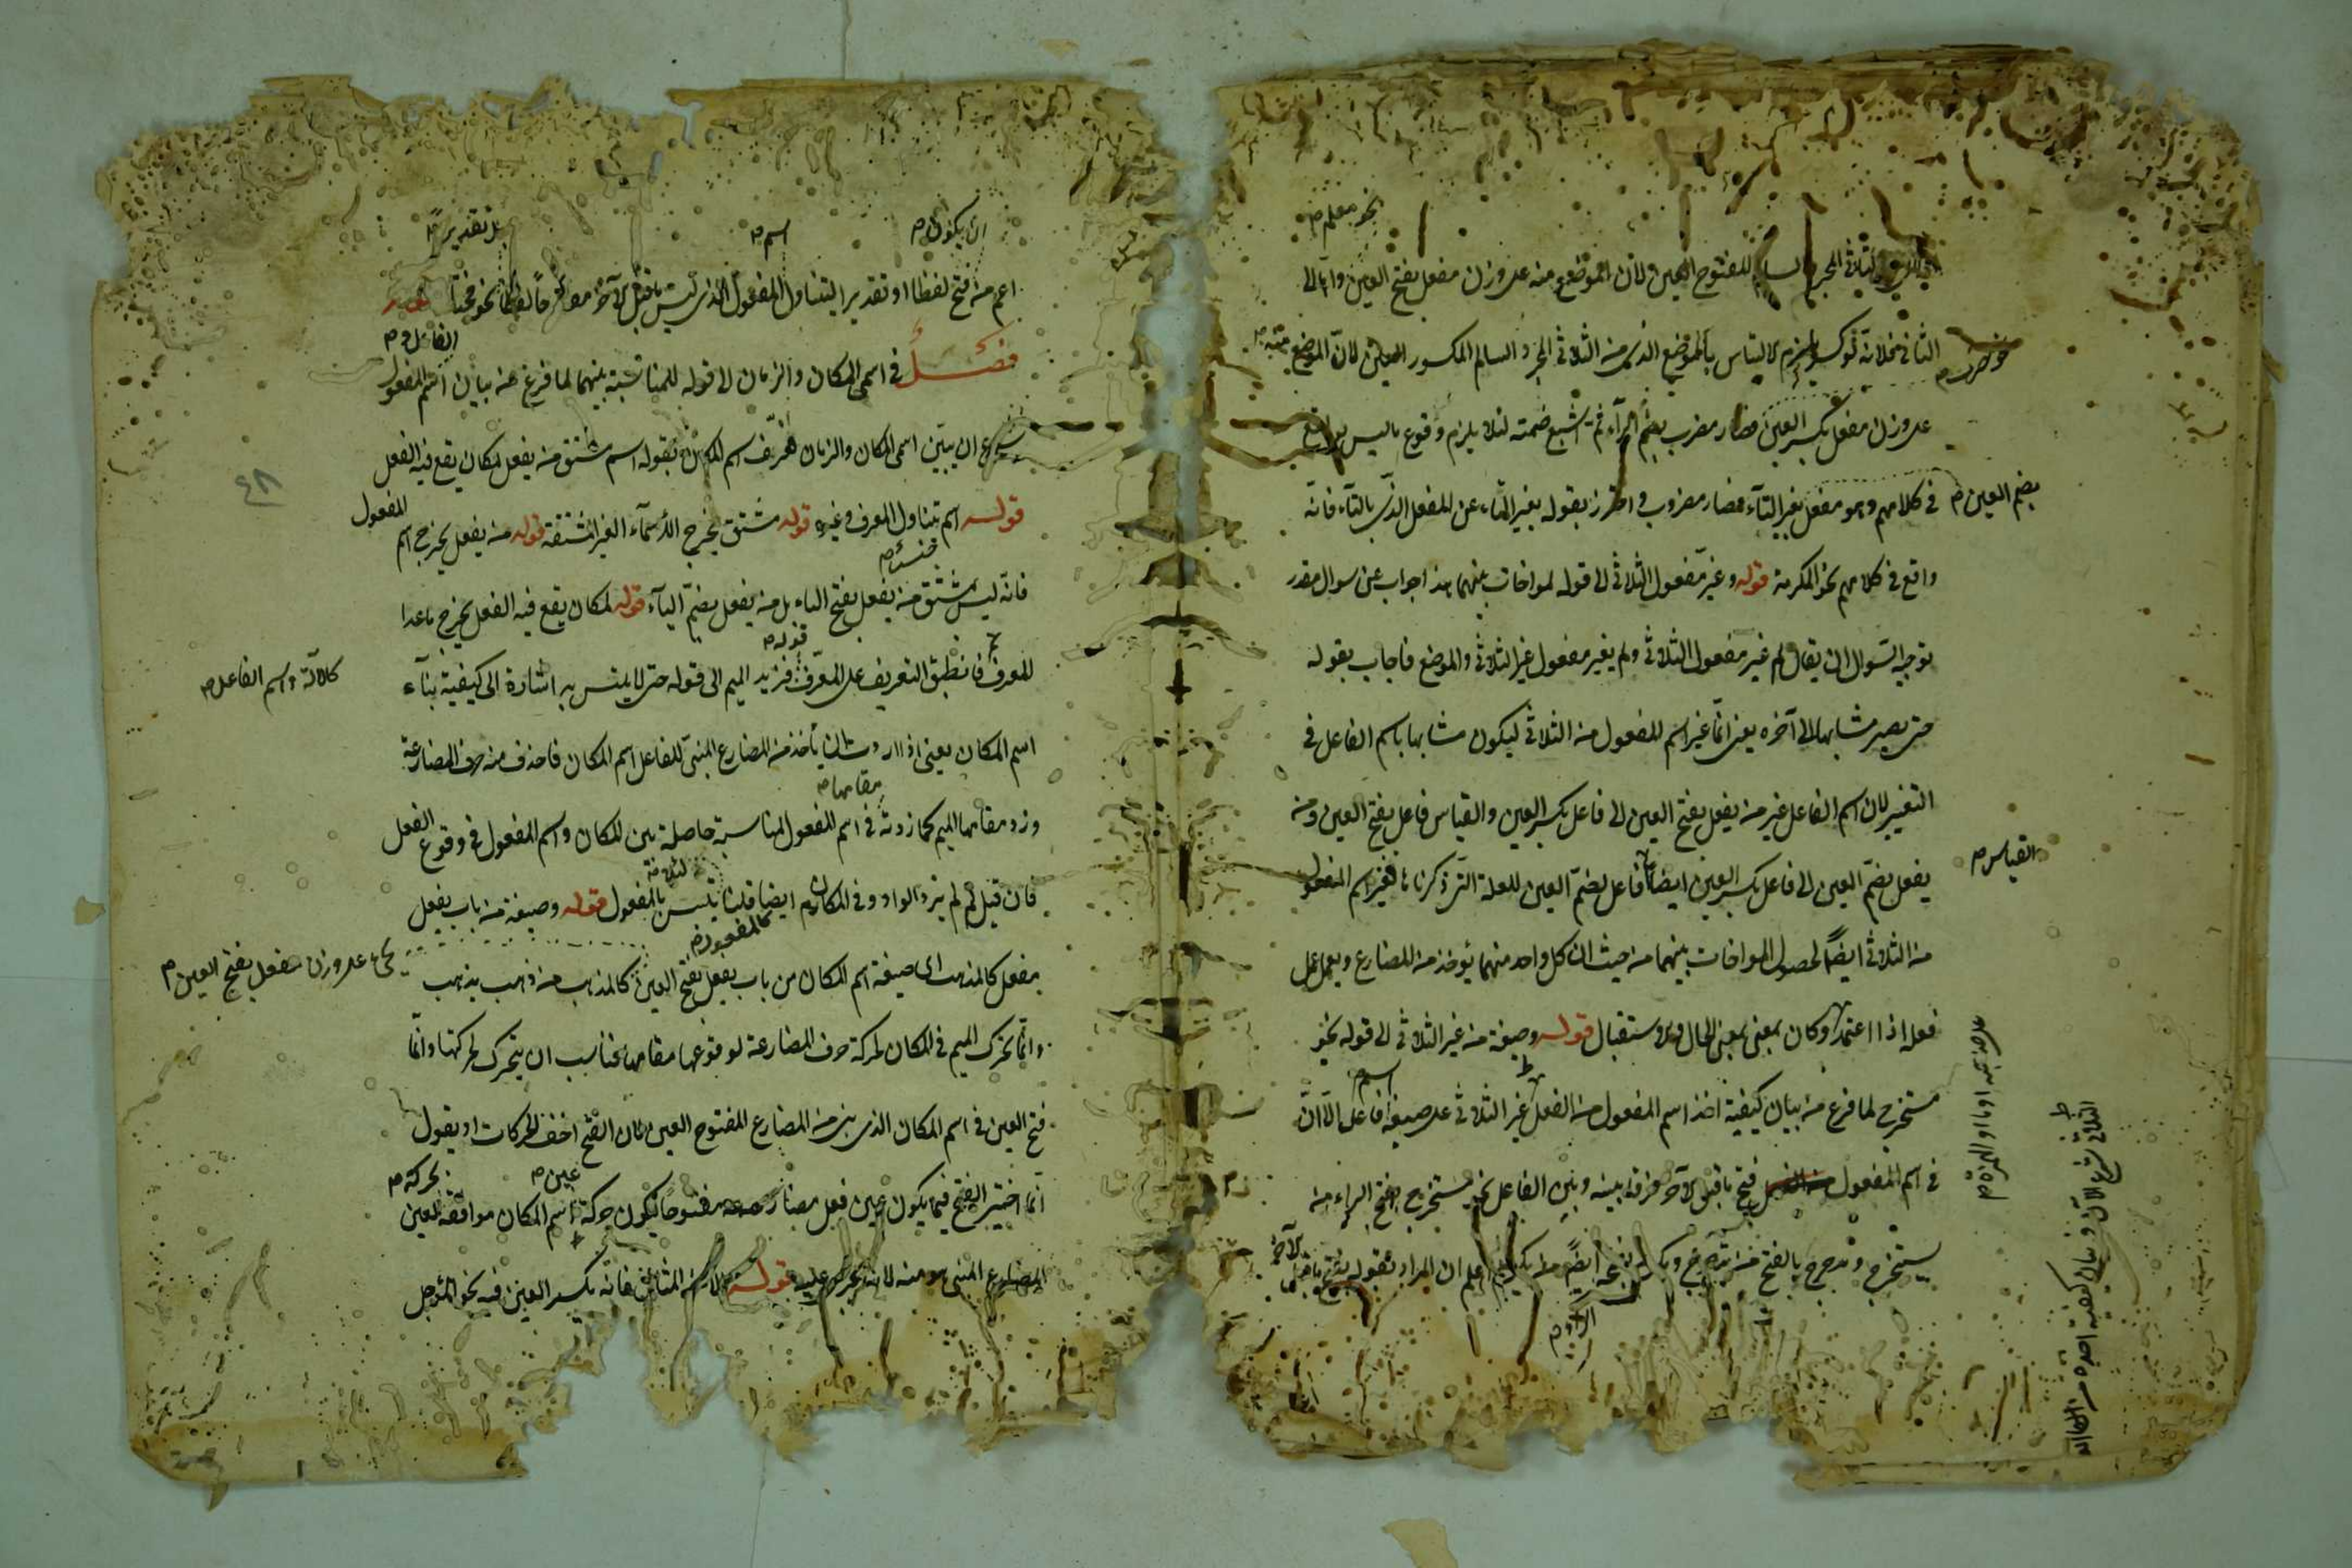 نحو معلم م
الثلاثى المجرد السالم للمفتوح العين ولان الموضع منه على وزن مفعل بفتح العين واما الى
الثانى فلانه لو كسر يلزم الالتباس بالموضع الذى من الثلاثى المجرد السالم المكسور العين لان الموضع منه م
على وزن مفعل بكسر العين فصار مضرب بضم الراء ثم اشبع ضمته لئلا يلزم وقوع ما ليس بواقع
بضم العين م
فى كلامهم وهو مفعل بغير التاء فصار مضروب واحترز بقوله بغير التاء عن المفعل الذى بالتاء فانه
واقع فى كلامهم نحو المكرمة قوله وغير مفعول الثلاثى الى قوله لمواخات بينهما هذا جواب عن سوال مقدر
توجيه السوال ان يقال لم غير مفعول الثلاثى ولم يغير مفعول غير الثلاثى والموضع فاجاب بقوله
حتى يصير مشابها الى آخره يعنى انما غير اسم المفعول من الثلاثى ليكون مشابها باسم الفاعل فى
التغيير لان اسم الفاعل غير من يفعل بفتح العين الى فاعل بكسر العين والقياس فاعل بفتح العين ومن
القياس م
يفعل بضم العين الى فاعل بكسر العين ايضا فاعل بضم العين للعلة التى ذكرناها فغير اسم المفعول
من الثلاثى ايضا لحصول المواخات بينهما من حيث ان كل واحد منهما يؤخذ من المضارع ويعمل عمل
فعله اذا اعتمد وكان بمعنى الحال والاستقبال قوله وصيغة من غير الثلاثى الى قوله نحو
اسم
مستخرج لما فرغ من بيان كيفية اخذ اسم المفعول من الفعل غير الثلاثى على صيغة فاعل الا ان
فى اسم المفعول فتح ما قبل الآخر فرقا بينه وبين الفاعل نحو مستخرج بفتح الراء من
يستخرج و مدحرج بالفتح من يدحرج اعلم ان المراد بقوله بفتح ما قبل الآخر
الراء م
الثلاثى شرع الآن فى بيان كيفية اخذه من
ان يكون م
اسم م
بل تقديرا م
اعم من فتح لفظا او تقديرا ليتناول المفعول الذى ليس ما قبل الآخر مفتوحا لفظا نحو مختار
الفاعل و م
فصل فى اسمى المكان والزمان الى قوله للمناسبة بينهما لما فرغ من بيان اسم المفعول
شرع ان يبين اسمى المكان والزمان فعرف اسم المكان بقوله اسم مشتق من يفعل لمكان يقع فيه الفعل
قوله اسم يتناول المعرف وغيره قوله مشتق يخرج الاسماء الغير المشتقة قوله من يفعل يخرج اسم المفعول
جنس م
فانه ليس مشتق من يفعل بفتح الياء بل من يفعل بضم الياء قوله لمكان يقع فيه الفعل يخرج ما عدا
كالآلة واسم الفاعل م
قوله م
المعرف فانطبق التعريف على المعرف فزيد الميم الى قوله حتى لا يلتبس به اشارة الى كيفية بناء
اسم المكان يعنى اذا اردت ان تأخذ من المضارع المبنى للفاعل اسم المكان فاحذف منه حرف المضارعة
مقامها م
وزد مقامها الميم كما زدته فى اسم المفعول لمناسبة حاصلة بين المكان واسم المفعول فى وقوع الفعل
فان قيل لم لم يزد الواو فى المكان ايضا قلنا لئلا يلتبس بالمفعول قوله وصيغة من باب يفعل
كالمفعول م
مفعل كالمذهب اى صيغة اسم المكان من باب يفعل بفتح العين كالمذهب من ذهب يذهب
على وزن مفعل بفتح العين م
وانما تحرك الميم فى المكان لحركة حرف المضارعة لوقوعها مقامها فناسب ان يتحرك لحركتها وانما
فتح العين فى اسم المكان الذى بنى من المضارع المفتوح العين لان الفتح اخف الحركات او يقول
عين م
بحركة م
انما اختير الفتح فيما يكون عين فعل مضارعه مفتوحا ليكون حركة اسم المكان موافقة لعين
المضارع المبنى منه قوله الا من المثال فانه بكسر العين فيه نحو الموجل
٤٨